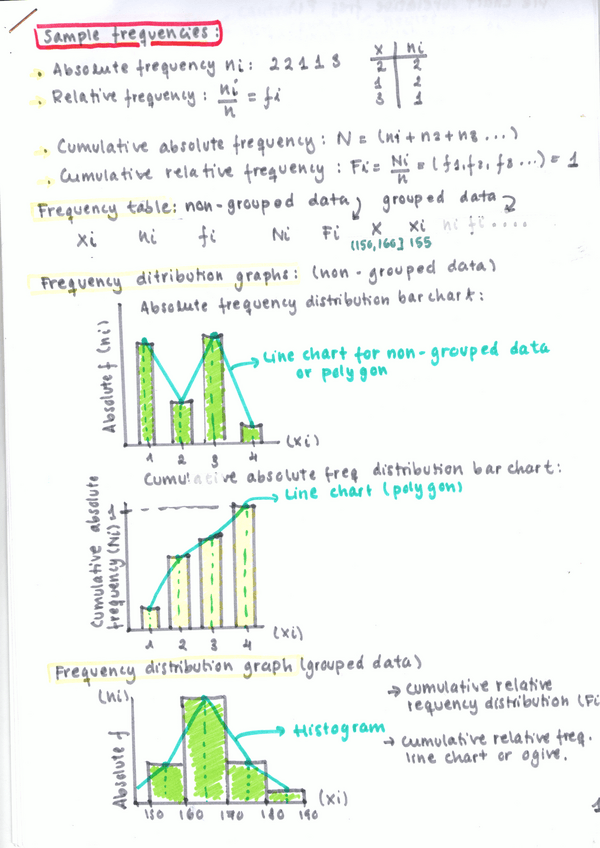 Sample frequencies:
• Absolute frequency ni: 2 2 1 1 3
x | ni
2 | 2
1 | 2
3 | 1
• Relative frequency: ni/n = fi
• Cumulative absolute frequency: N = (n1 + n2 + n3 ...)
• Cumulative relative frequency: Fi = Ni/n = (f1, f2, f3 ...) = 1
Frequency table: non-grouped data grouped data
xi ni fi Ni Fi x xi ni fi ....
(150,160] 155
Frequency ditribution graphs: (non-grouped data)
Absolute frequency distribution bar chart:
Absolute f (ni)
→ Line chart for non-grouped data
or polygon
1 2 3 4 (xi)
Cumulative absolute freq distribution bar chart:
→ Line chart (polygon)
Cumulative absolute
frequency (Ni)
1
1 2 3 4 (xi)
Frequency distribution graph (grouped data)
(ni)
Absolute f
→ Histogram
150 160 170 180 190 (xi)
→ cumulative relative
requency distribution (Fi
→ cumulative relative freq.
line chart or ogive.